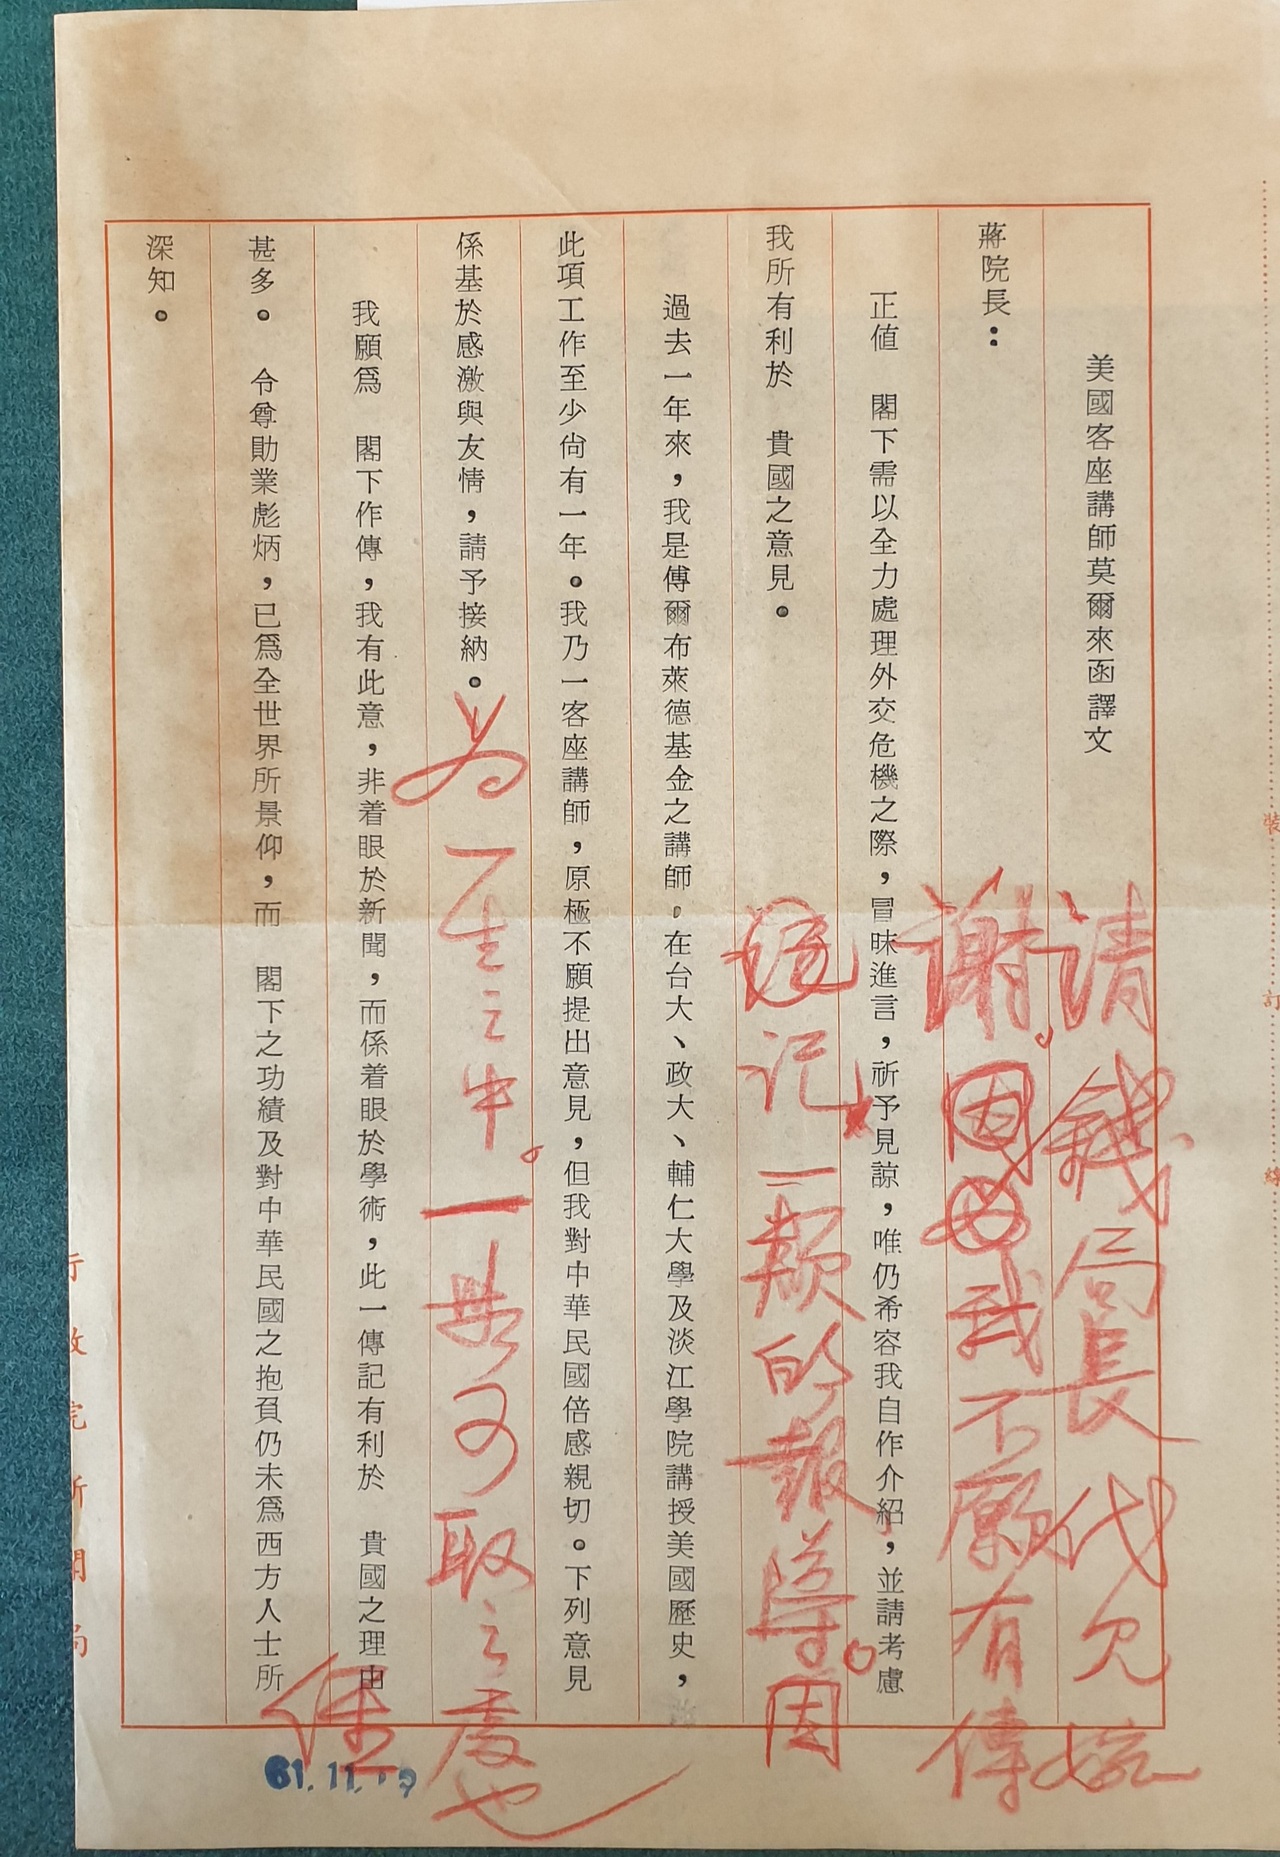 美國客座講師莫爾來函譯文
蔣院長：
正值　閣下需以全力處理外交危機之際，冒昧進言，祈予見諒，唯仍希容我自作介紹，並請考慮
我所有利於　貴國之意見。
過去一年來，我是傅爾布萊德基金之講師。在台大、政大、輔仁大學及淡江學院講授美國歷史，
此項工作至少尙有一年。我乃一客座講師，原極不願提出意見，但我對中華民國倍感親切。下列意見
係基於感激與友情，請予接納。
我願爲　閣下作傳，我有此意，非着眼於新聞，而係着眼於學術，此一傳記有利於　貴國之理由
甚多。　令尊勛業彪炳，已爲全世界所景仰，而　閣下之功績及對中華民國之抱負仍未爲西方人士所
深知。
请錢局長代为婉
谢。我不願有傳
记一類的報導。因
为一生之中。一無可取之處也
經
61.11.09
裝
訂
線
行政院新聞局